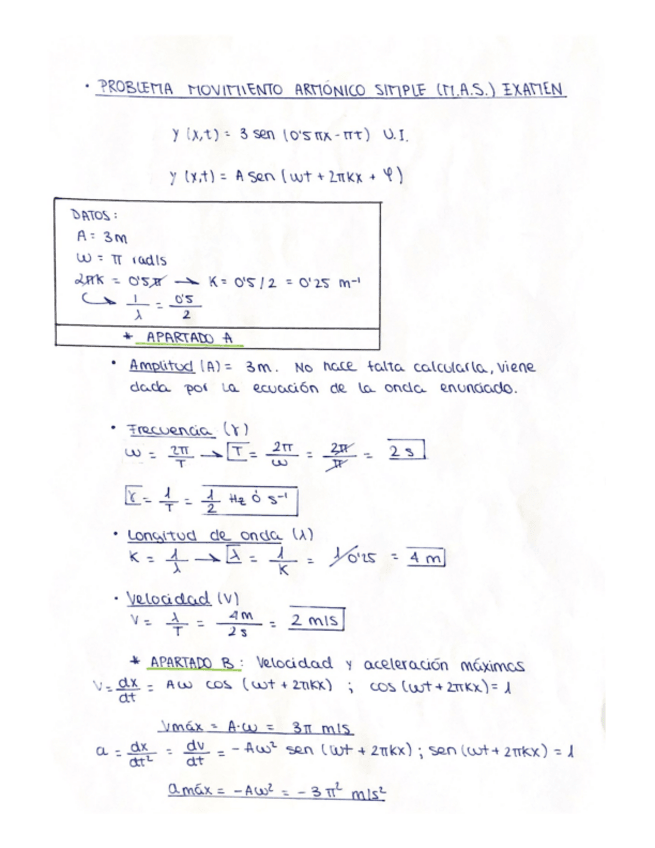 • PROBLEMA MOVIMIENTO ARMÓNICO SIMPLE (M.A.S.) EXAMEN
y (x,t) = 3 sen (0'5 πx - πt) U.I.
y (x,t) = A sen (ωt + 2πKx + φ)
DATOS:
A = 3m
ω = π rad/s
2πK = 0'5π → K = 0'5 / 2 = 0'25 m⁻¹
↳ 1/λ = 0'5/2
* APARTADO A
• Amplitud (A) = 3m. No hace falta calcularla, viene
dada por la ecuación de la onda enunciado.
• Frecuencia (γ)
ω = 2π/T → T = 2π/ω = 2π/π = 2 s
γ = 1/T = 1/2 Hz ó s⁻¹
• Longitud de onda (λ)
K = 1/λ → λ = 1/K = 1/0'25 = 4 m
• Velocidad (V)
V = λ/T = 4m/2s = 2 m/s
* APARTADO B: Velocidad y aceleración máximas
V = dx/dt = Aω cos (ωt + 2πKx) ; cos (ωt + 2πKx) = 1
Vmáx = A·ω = 3π m/s
a = dx/dt² = dv/dt = -Aω² sen (ωt + 2πKx) ; sen (ωt + 2πKx) = 1
amáx = -Aω² = -3π² m/s²